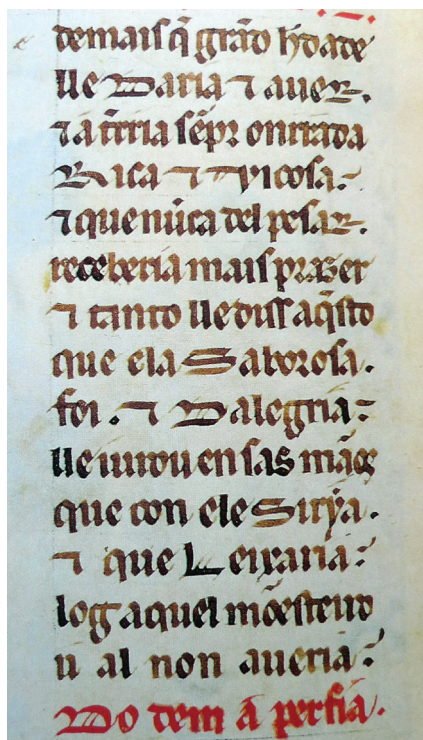 demais q̃ grãd hdade
lle Daria ⁊ auer.
⁊ a t̃rria sẽpr onrrada
Rica ⁊ viçosa:
⁊ que nũca del pesar.
receberia mais prazer
⁊ tanto lle diss aq̃sto
que ela Saborosa.
foi. ⁊ Dalegria:
lle iurou en sas mãos
que con ele Sirÿa.
⁊ que Leixaria:
log aquel mõesteiro
u al non aueria:
Do dem a perfia.